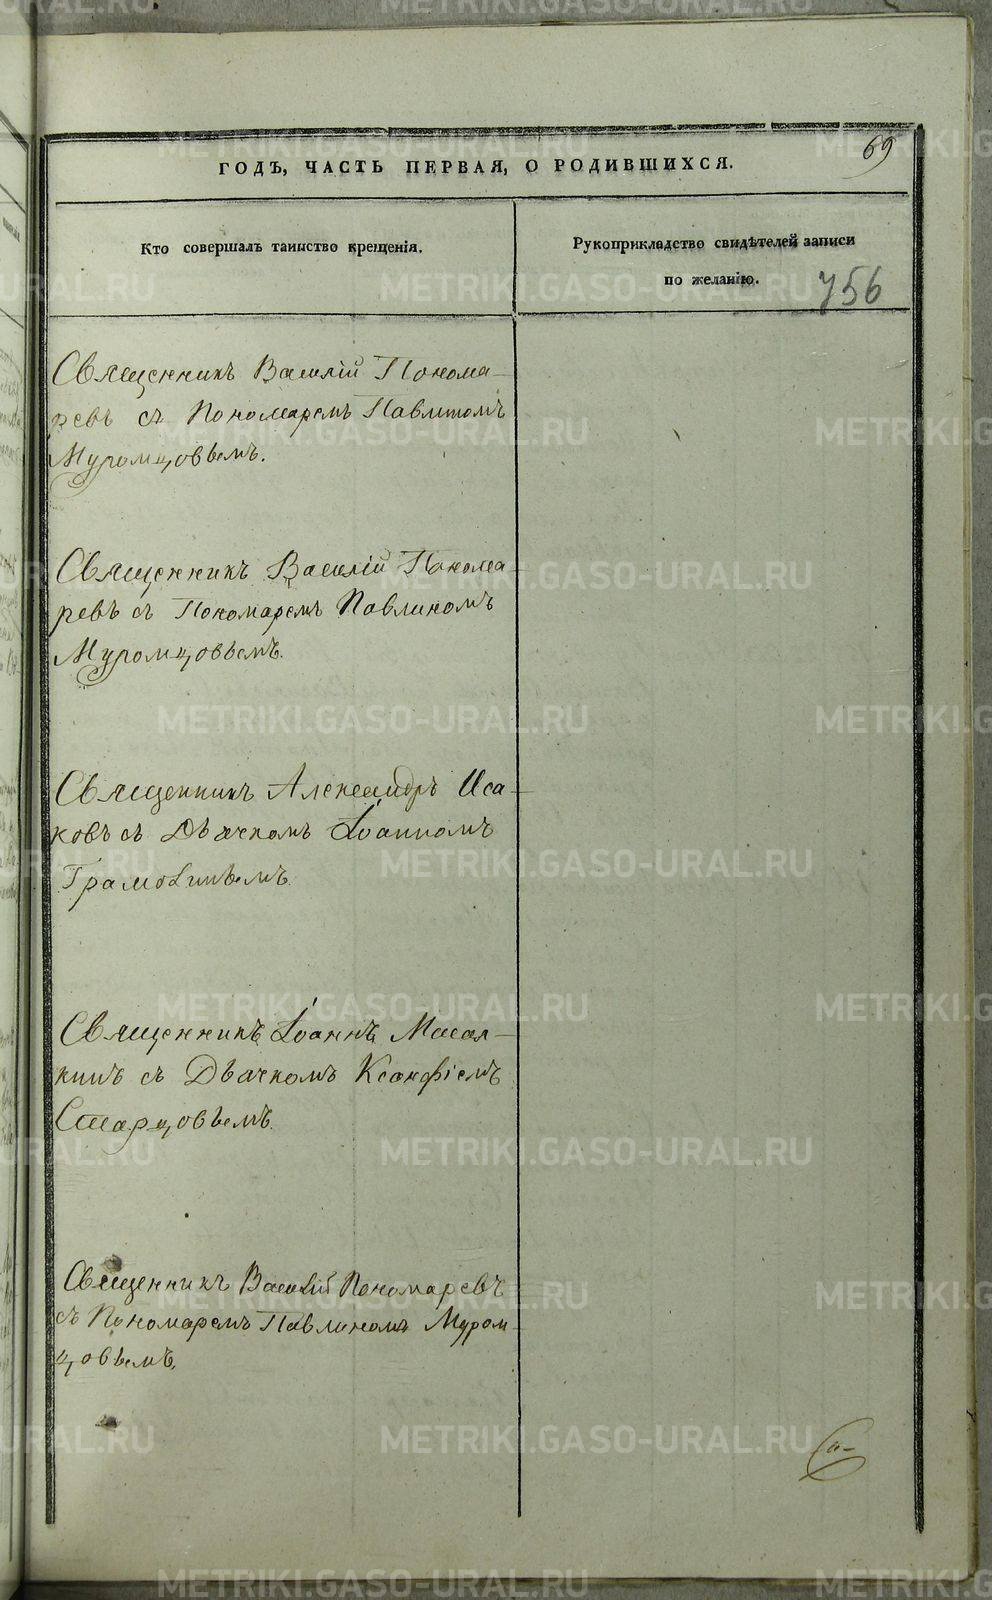 69
ГОДЪ, ЧАСТЬ ПЕРВАЯ, О РОДИВШИХСЯ.
Кто совершалъ таинство крещенія.
Рукоприкладство свидѣтелей записи
по желанію.
756
Священникъ Василій Понома-
ревъ съ Пономаремъ Павлиномъ
Муромцовьемъ.
Священникъ Василій Понома-
ревъ съ Пономаремъ Павлиномъ
Муромцовьемъ.
Священникъ Александръ Иса-
ковъ съ Дьячкомъ Іоанномъ
Священникъ Іоаннъ
съ Дьячкомъ Ксанфіемъ
Старцовьемъ.
Священникъ Василій Пономаревъ
съ Пономаремъ Павлиномъ Муром-
цовьемъ.
METRIKI.GASO-URAL.RU